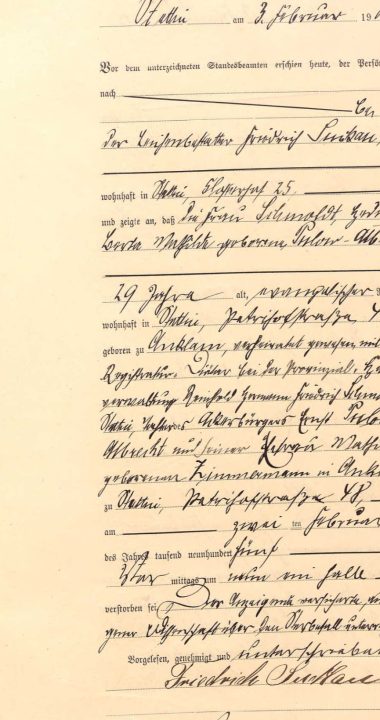 Stettin am 3. Februar 19
Vor dem unterzeichneten Standesbeamten erschien heute, der Persö
nach
der Leichenbestatter Friedrich Suckau,
wohnhaft in Stettin Klosterhof 25.
und zeigte an, daß die Frau Schmoldt,
Berta Mathilde geborene
29 Jahre alt, evangelischer
wohnhaft in Stettin, Petrihofstraße 4
geboren zu Anklam, verheiratet gewesen mit
Registratur- bei der Provinzial-
verwaltung Reinhold Hermann Friedrich Schm
Stettin, Tochter des Ackerbürgers Ernst
Albrecht und seiner Ehefrau Mathi
geborenen Zimmermann in Ankl
zu Stettin, Petrihofstraße 48,
am zwei ten Februar
des Jahres tausend neunhundert fünf
Vor mittags um neun ein halb
verstorben sei. Der Anzeigende versicherte,
gener Wissenschaft über den Sterbefall unterri
Vorgelesen, genehmigt und unterschrieben
Friedrich Suckau